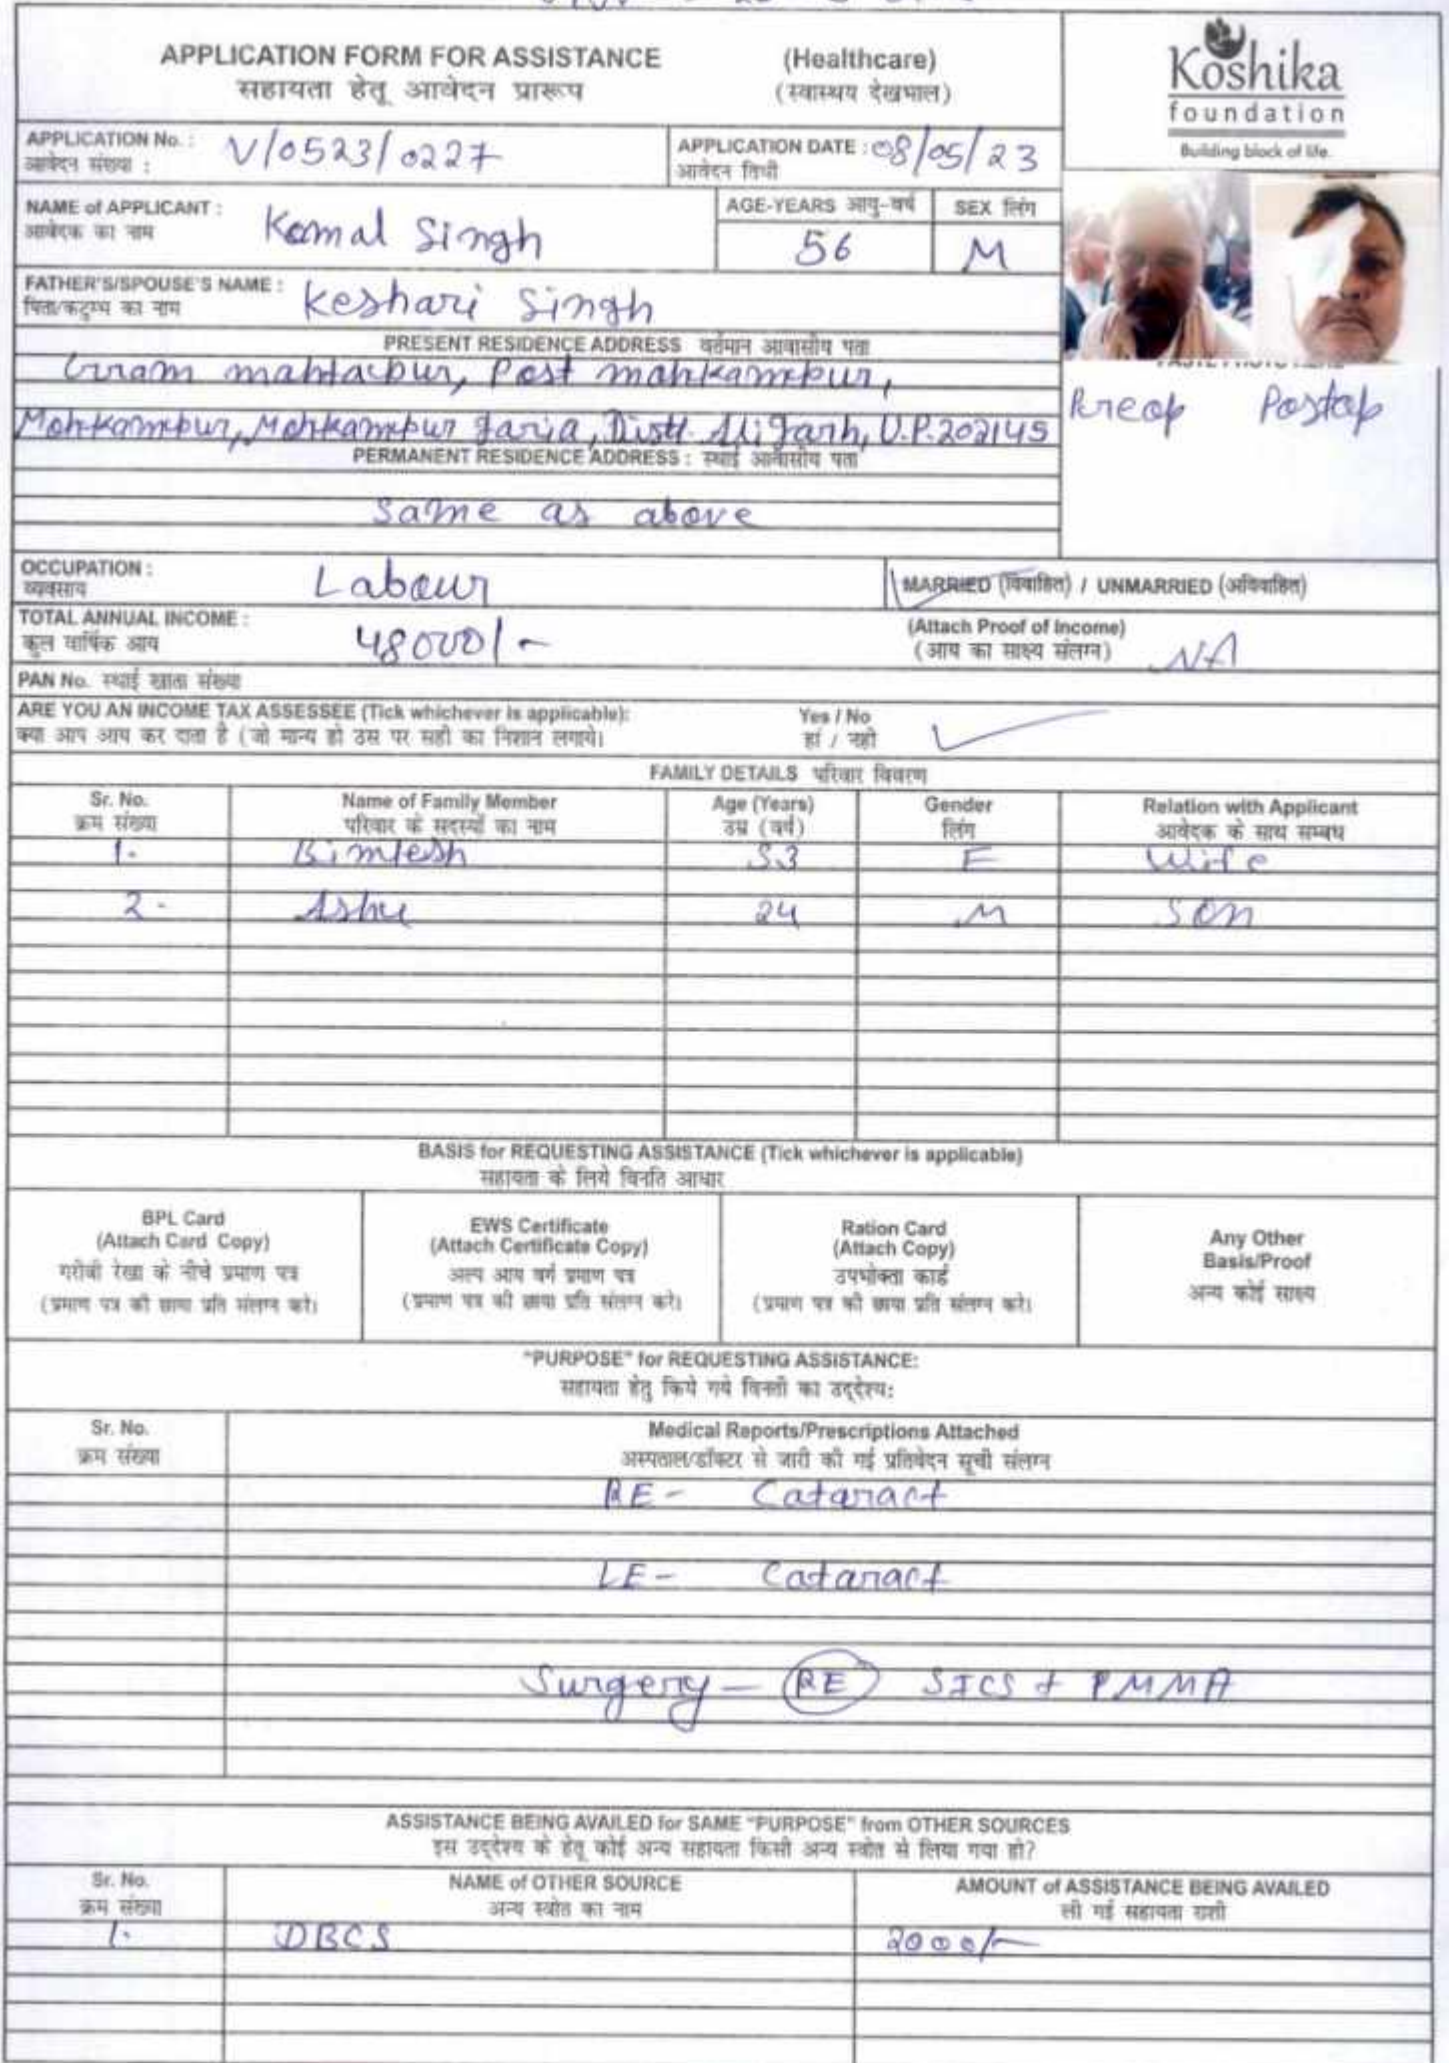 APPLICATION FORM FOR ASSISTANCE (Healthcare)
सहायता हेतू आवेदन प्रारूप (स्वास्थय देखभाल)
Koshika
foundation
Building block of life.
APPLICATION No. : V/0523/0227 APPLICATION DATE : 08/05/23
आवेदन संख्या : आवेदन तिथी
NAME of APPLICANT : Komal Singh AGE-YEARS आयु-वर्ष SEX लिंग
आवेदक का नाम 56 M
FATHER'S/SPOUSE'S NAME : Keshari Singh
पिता/कटुम्ब का नाम
PRESENT RESIDENCE ADDRESS वर्तमान आवासीय पता
Gram mahtabur, Post mahkampur,
Mohkampur, Mohkampur Jaria, Distt. Aligarh, U.P.202145
Preop Postop
PERMANENT RESIDENCE ADDRESS : स्थाई आवासीय पता
Same as above
OCCUPATION : Labour MARRIED (विवाहित) / UNMARRIED (अविवाहित)
व्यवसाय
TOTAL ANNUAL INCOME : 48000/- (Attach Proof of Income)
कुल वार्षिक आय (आय का साक्ष्य संलग्न) NA
PAN No. स्थाई खाता संख्या
ARE YOU AN INCOME TAX ASSESSEE (Tick whichever is applicable): Yes / No
क्या आप आय कर दाता है (जो मान्य हो उस पर सही का निशान लगाये। हां / नहीं
FAMILY DETAILS परिवार विवरण
Sr. No. Name of Family Member Age (Years) Gender Relation with Applicant
क्रम संख्या परिवार के सदस्यों का नाम उम्र (वर्ष) लिंग आवेदक के साथ सम्बध
1- Bimlesh 53 F Wife
2- Ashu 24 M Son
BASIS for REQUESTING ASSISTANCE (Tick whichever is applicable)
सहायता के लिये विनति आधार
BPL Card
(Attach Card Copy)
गरीबी रेखा के नीचे प्रमाण पत्र
(प्रमाण पत्र की छाया प्रति संलग्न करे।
EWS Certificate
(Attach Certificate Copy)
अल्प आय वर्ग प्रमाण पत्र
(प्रमाण पत्र की छाया प्रति संलग्न करे।
Ration Card
(Attach Copy)
उपभोक्ता कार्ड
(प्रमाण पत्र की छाया प्रति संलग्न करे।
Any Other
Basis/Proof
अन्य कोई साक्ष्य
"PURPOSE" for REQUESTING ASSISTANCE:
सहायता हेतु किये गये विनती का उद्देश्य:
Sr. No. Medical Reports/Prescriptions Attached
क्रम संख्या अस्पताल/डॉक्टर से जारी की गई प्रतिवेदन सूची संलग्न
RE- Cataract
LE- Cataract
Surgery - RE SICS + PMMA
ASSISTANCE BEING AVAILED for SAME "PURPOSE" from OTHER SOURCES
इस उद्देश्य के हेतू कोई अन्य सहायता किसी अन्य स्त्रोत से लिया गया हो?
Sr. No. NAME of OTHER SOURCE AMOUNT of ASSISTANCE BEING AVAILED
क्रम संख्या अन्य स्त्रोत का नाम ली गई सहायता राशी
1. DBCS 2000/-